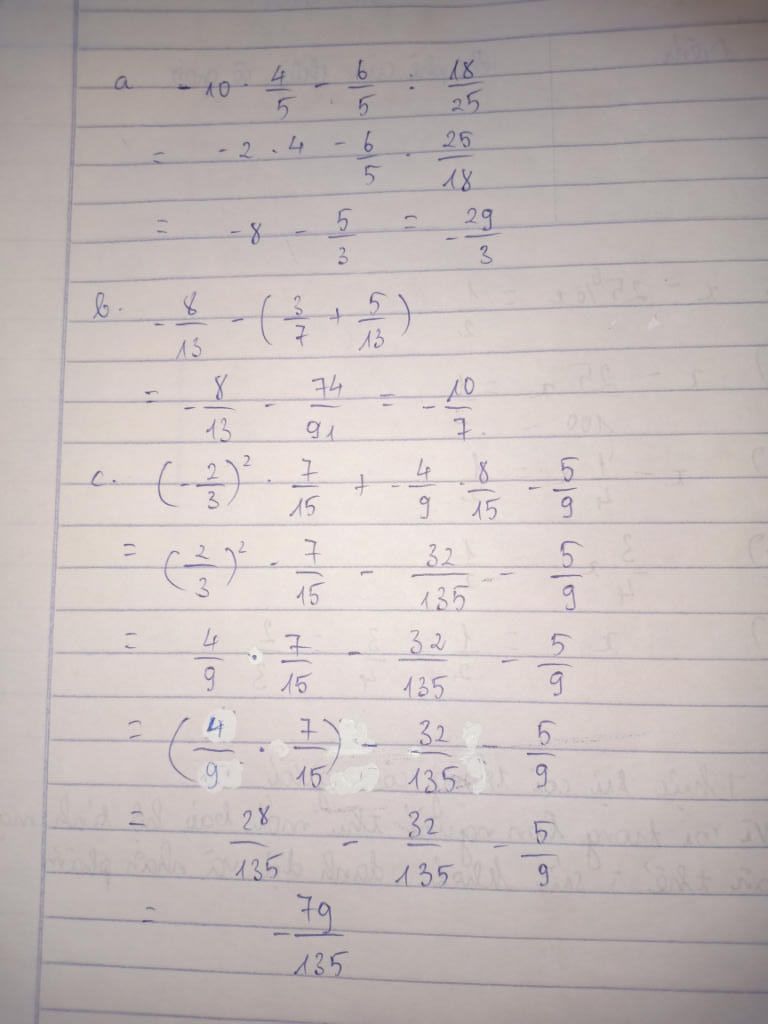 a -10 · 4/5 - 6/5 : 18/25
= -2 · 4 - 6/5 · 25/18
= -8 - 5/3 = -29/3
b. -8/13 - (3/7 + 5/13)
= -8/13 - 74/91 = -10/7
c. (-2/3)² · 7/15 + -4/9 · 8/15 - 5/9
= (2/3)² - 7/15 - 32/135 - 5/9
= 4/9 · 7/15 - 32/135 - 5/9
= (4/9 · 7/15) - 32/135 - 5/9
= 28/135 - 32/135 - 5/9
= -79/135